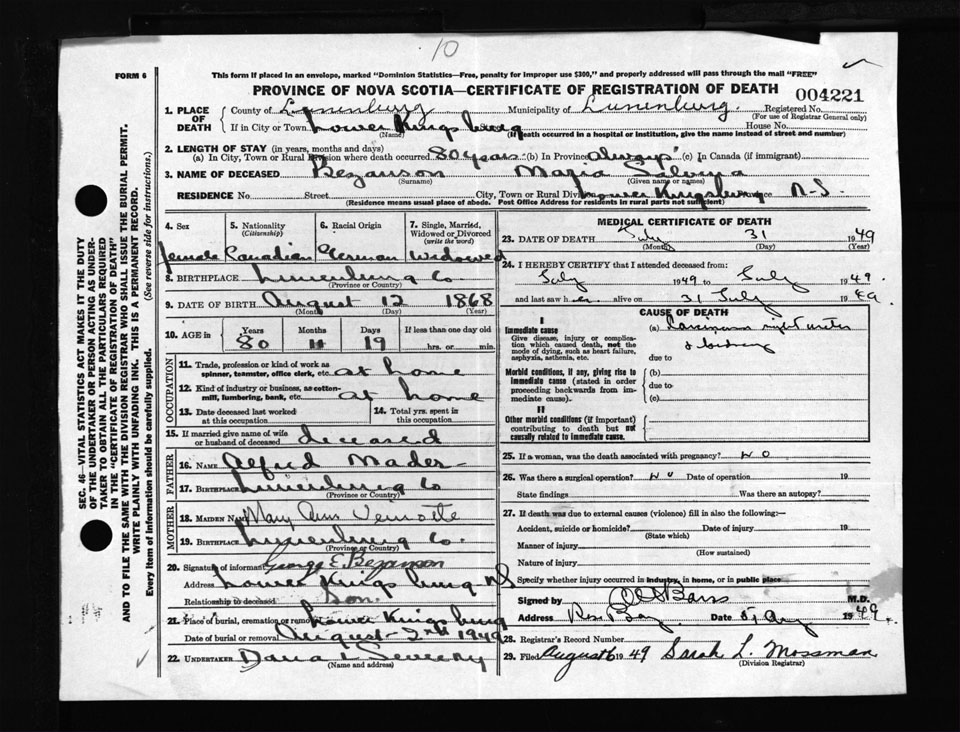 10
FORM 6
This form if placed in an envelope, marked "Dominion Statistics—Free, penalty for improper use $300," and properly addressed will pass through the mail "FREE"
PROVINCE OF NOVA SCOTIA—CERTIFICATE OF REGISTRATION OF DEATH
004221
SEC. 46—VITAL STATISTICS ACT MAKES IT THE DUTY
OF THE UNDERTAKER OR PERSON ACTING AS UNDER-
TAKER TO OBTAIN ALL THE PARTICULARS REQUIRED
IN THE "CERTIFICATE OF REGISTRATION OF DEATH"
AND TO FILE THE SAME WITH THE DIVISION REGISTRAR WHO SHALL ISSUE THE BURIAL PERMIT.
WRITE PLAINLY WITH UNFADING INK. THIS IS A PERMANENT RECORD.
Every item of information should be carefully supplied. (See reverse side for instructions.)
1. PLACE OF DEATH { County of Lunenburg Municipality of Lunenburg. Registered No.
(For use of Registrar General only)
If in City or Town Lower Kingsburg House No.
(Name) (If death occurred in a hospital or institution, give the name instead of street and number)
2. LENGTH OF STAY (in years, months and days)
(a) In City, Town or Rural Division where death occurred 80 years (b) In Province always (c) In Canada (if immigrant)
3. NAME OF DECEASED Bezanson Maria
(Surname) (Given name or names)
RESIDENCE No. Street City, Town or Rural Div. Lower Kingsburg N-S.
(Residence means usual place of abode. Post Office Address for residents in rural parts not sufficient)
4. Sex 5. Nationality (Citizenship) 6. Racial Origin 7. Single, Married, Widowed or Divorced (write the word)
female Canadian German Widowed
8. BIRTHPLACE Lunenburg Co
(Province or Country)
9. DATE OF BIRTH August 12 1868
(Month) (Day) (Year)
10. AGE in { Years Months Days If less than one day old
80 11 19 hrs. or min.
OCCUPATION
11. Trade, profession or kind of work as spinner, teamster, office clerk, etc. at home
12. Kind of industry or business, as cotton-mill, lumbering, bank, etc. at home
13. Date deceased last worked at this occupation 14. Total yrs. spent in this occupation
15. If married give name of wife or husband of deceased deceased
FATHER
16. NAME Alfred Mader
17. BIRTHPLACE Lunenburg Co
(Province or Country)
MOTHER
18. MAIDEN NAME Mary Ann
19. BIRTHPLACE Lunenburg Co.
(Province or Country)
20. Signature of informant George E. Bezanson
Address Lower Kingsburg NS
Relationship to deceased Son.
21. Place of burial, cremation or removal Lower Kingsburg
Date of burial or removal August 2nd 1949
22. UNDERTAKER
(Name and address)
MEDICAL CERTIFICATE OF DEATH
23. DATE OF DEATH July 31 1949
(Month) (Day) (Year)
24. I HEREBY CERTIFY that I attended deceased from:
July 1949 to July 1949.
and last saw her alive on 31 July 1949.
CAUSE OF DEATH
I
Immediate cause (a) Carcinoma right
Give disease, injury or complication which caused death, not the mode of dying, such as heart failure, asphyxia, asthenia, etc.
due to
Morbid conditions, if any, giving rise to immediate cause (stated in order proceeding backwards from immediate cause).
(b)
due to
(c)
II
Other morbid conditions (if important) contributing to death but not causally related to immediate cause.
25. If a woman, was the death associated with pregnancy? NO
26. Was there a surgical operation? NO Date of operation 19
State findings Was there an autopsy?
27. If death was due to external causes (violence) fill in also the following:—
Accident, suicide or homicide? Date of injury 19
(State which)
Manner of injury
(How sustained)
Nature of injury
Specify whether injury occurred in industry, in home, or in public place
Signed by M.D.
Address Date 5, Aug 1949.
28. Registrar's Record Number
29. Filed August 6 1949 Sarah L. Mossman
(Division Registrar)